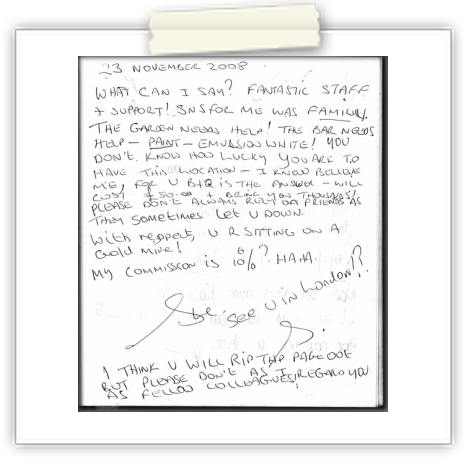 23 NOVEMBER 2008
WHAT CAN I SAY? FANTASTIC STAFF
+ SUPPORT! SNS FOR ME WAS FAMILY.
THE GARDEN NEEDS HELP! THE BAR NEEDS
HELP - PAINT - EMULSION WHITE! YOU
DON'T KNOW HOW LUCKY YOU ARE TO
HAVE THIS LOCATION - I KNOW BELIEVE
ME, FOR U B+Q IS THE ANSWER - WILL
COST £50.00 + BRING YOU THOUSANDS!
PLEASE DON'T ALWAYS RELY ON FRIENDS AS
THEY SOMETIMES LET U DOWN.
With respect, U R SITTING ON A
Gold Mine!
MY COMMISSION IS 10%? HAHA.
see U in London!?
I THINK U WILL RIP THIS PAGE OUT
BUT PLEASE DON'T AS I REGARD YOU
AS FELLOW COLLEAGUES!